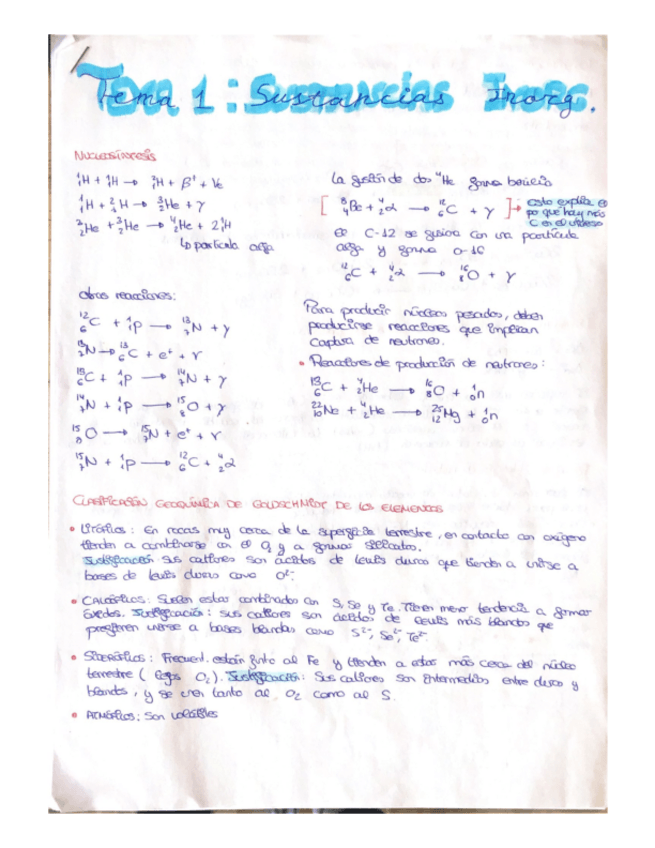 Tema 1: Sustancias Inorg.
NUCLEOSÍNTESIS
¹₁H + ¹₁H → ²₁H + β⁺ + νe
¹₁H + ²₁H → ³₂He + γ
³₂He + ³₂He → ⁴₂He + 2 ¹₁H
↳ partícula alfa
La fusión de dos ⁴He forma berilio
[ ⁸₄Be + ⁴₂α → ¹²₆C + γ ] → esto explica el
por que hay más
C en el universo
El C-12 se fusiona con una partícula
alfa y forma O-16
¹²₆C + ⁴₂α → ¹⁶₈O + γ
Otras reacciones:
¹²₆C + ¹₁p → ¹³₇N + γ
¹³₇N → ¹³₆C + e⁺ + γ
¹³₆C + ¹₁p → ¹⁴₇N + γ
¹⁴₇N + ¹₁p → ¹⁵₈O + γ
¹⁵₈O → ¹⁵₇N + e⁺ + γ
¹⁵₇N + ¹₁p → ¹²₆C + ⁴₂α
Para producir núcleos pesados, deben
producirse reacciones que implican
captura de neutrones.
• Reacciones de producción de neutrones:
¹³₆C + ⁴₂He → ¹⁶₈O + ¹₀n
²²₁₀Ne + ⁴₂He → ²⁵₁₂Mg + ¹₀n
CLASIFICACIÓN GEOQUÍMICA DE GOLDSCHMIDT DE LOS ELEMENTOS
• LITÓFILOS: En rocas muy cerca de la superficie terrestre, en contacto con oxígeno
tienden a combinarse con el O₂ y a formar silicatos.
Justificación Sus cationes son ácidos de Lewis duros que tienden a unirse a
bases de Lewis duras como O²⁻.
• CALCÓFILOS: Suelen estar combinados con S, Se y Te. Tienen menor tendencia a formar
óxidos. Justificación: sus cationes son ácidos de Lewis más blandos que
prefieren unirse a bases blandas como S²⁻, Se²⁻, Te²⁻.
• SIDERÓFILOS: Frecuent. están junto al Fe y tienden a estar más cerca del núcleo
terrestre ( O₂). Justificación: Sus cationes son intermedios entre duros y
blandos, y se unen tanto al O₂ como al S.
• ATMÓFILOS: Son volátiles